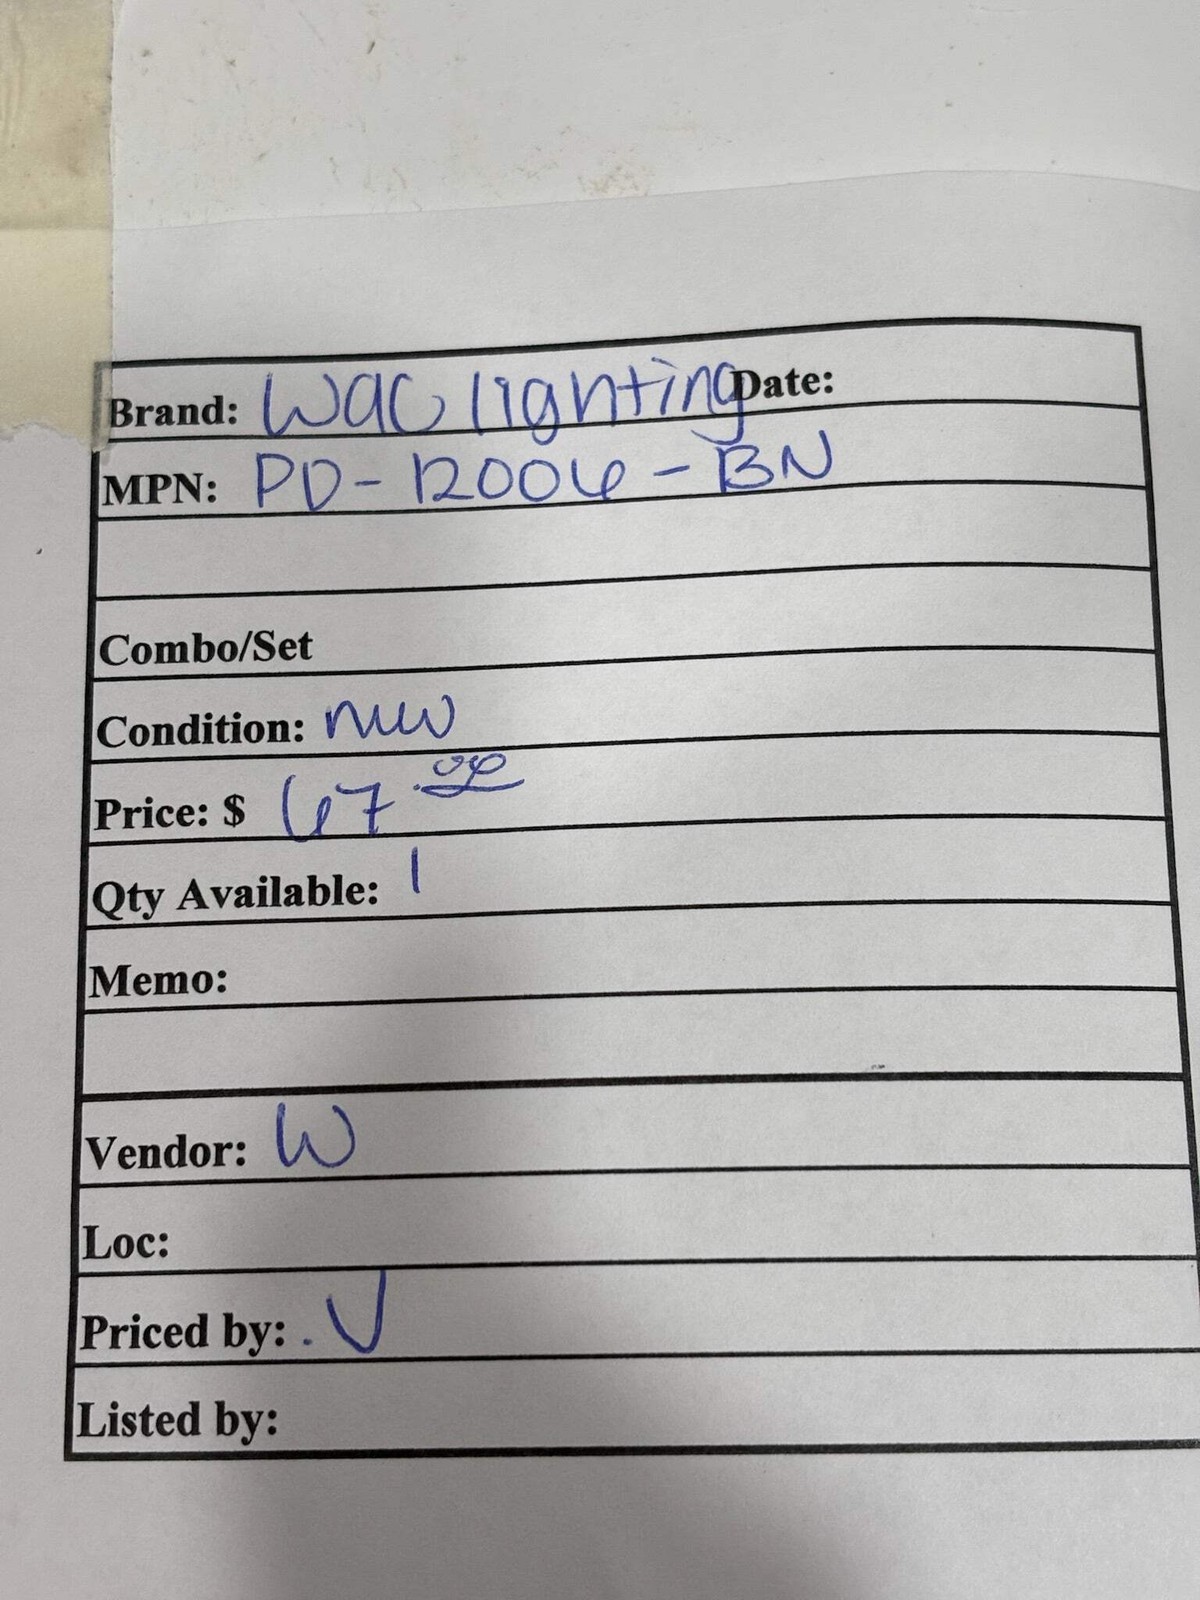 Brand: Wac lighting Date:
MPN: PD-12006-BN
Combo/Set
Condition: new
Price: $ 67.00
Qty Available: 1
Memo:
Vendor: W
Loc:
Priced by: . J
Listed by: